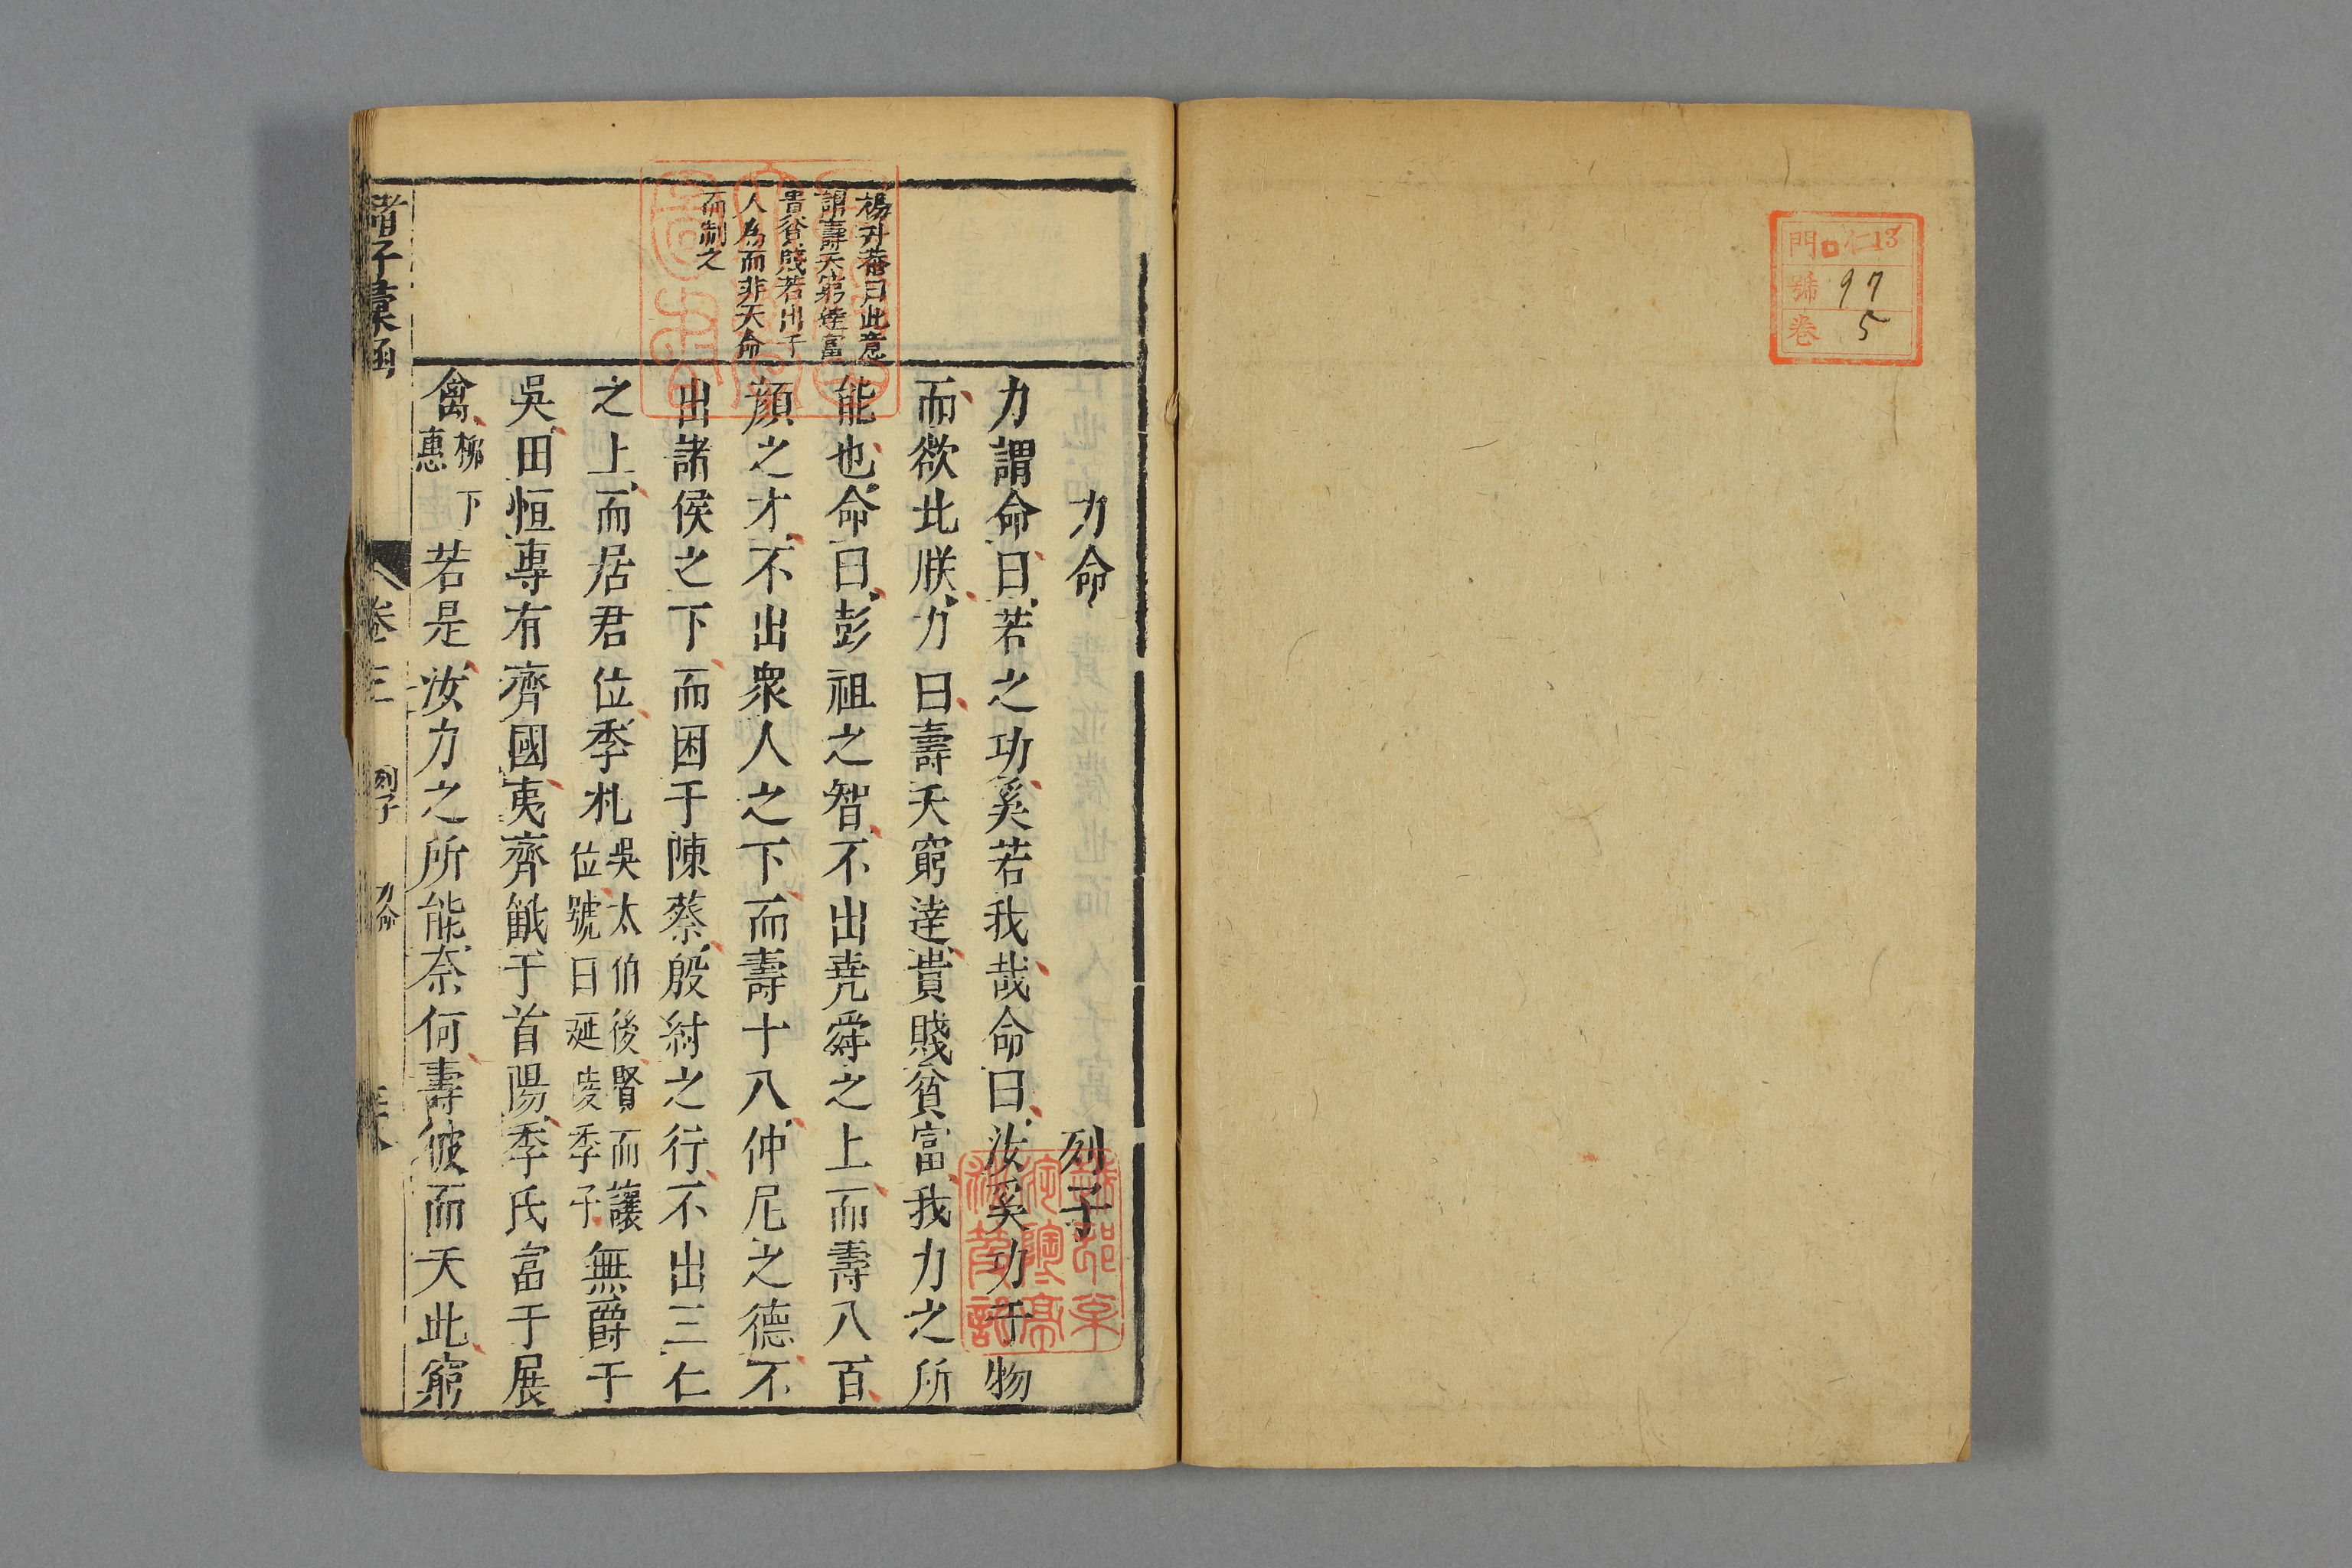 門ロ仁13
號 97
卷 5
力命 列子
力謂命曰若之功奚若我哉命曰汝奚功于物
而欲比朕力曰壽夭窮達貴賤貧富我力之所
能也命曰彭祖之智不出堯舜之上而壽八百
顏之才不出衆人之下而壽十八仲尼之德不
出諸侯之下而困于陳蔡殷紂之行不出三仁
之上而居君位季札吳太伯後賢而讓位號曰延陵季子無爵于
吳田恒專有齊國夷齊餓于首陽季氏富于展
禽柳下惠若是汝力之所能奈何壽彼而夭此窮
楊升菴曰此意
謂壽夭窮達富
貴貧賤若出于
人為而非天命
而制之
諸子彙函 卷三 列子 力命